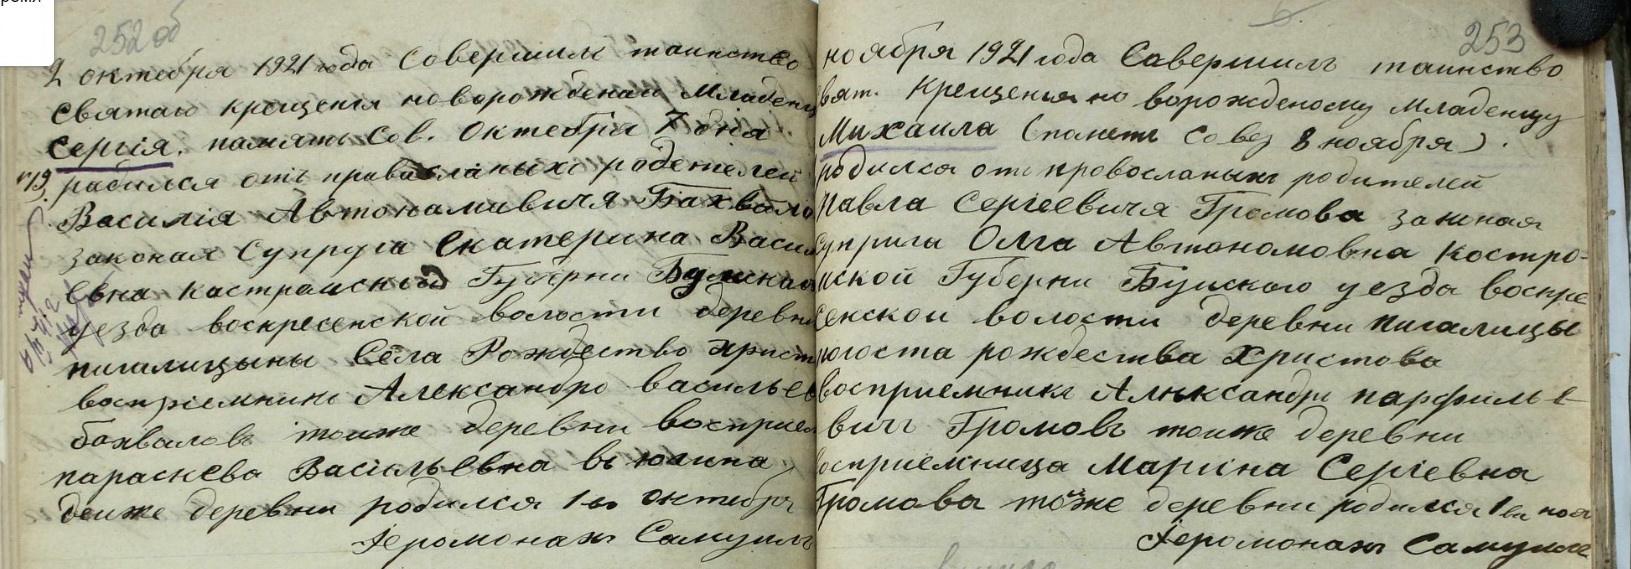 252 об
2 октебря 1921 года Совершилъ таинство
святаго крещения новорожденаго Младенц
Сергія. память Сов. Октебря 7 дня
№19. радился отъ православныхъ родителей
Василія Автонамивичя Бахвало
законая Супруга Екатерина Васил
евна кастрамской Губерни Буйскаго
уезда воскресенской валости деревни
пигалицыны Села Рождество христ
восприемникъ Александръ васильев
бахваловъ тоиже деревни восприем
параскева Васильевна вьюгина
доиже деревни родился 1 го октебря
Іеромонахъ Самуилъ
253
ноября 1921 года Совершилъ таинство
вят. Крещения но ворожденому младенцу
Михаила (паметь совез 8 ноября).
родился отъ провосланыхъ родителей
Павла Сергеевичя Громова законая
супруга Олга Автономовна Костро-
мской Губерни Буйского уезда воскре
сенской волости деревни пигалицы
погоста рождества Христова
восприемникъ Александръ парфилье
вичъ Громовъ тоиже деревни
восприемница Марина Сергевна
Громова тоиже деревни родился 1 го ноя
Іеромонахъ Самуилъ